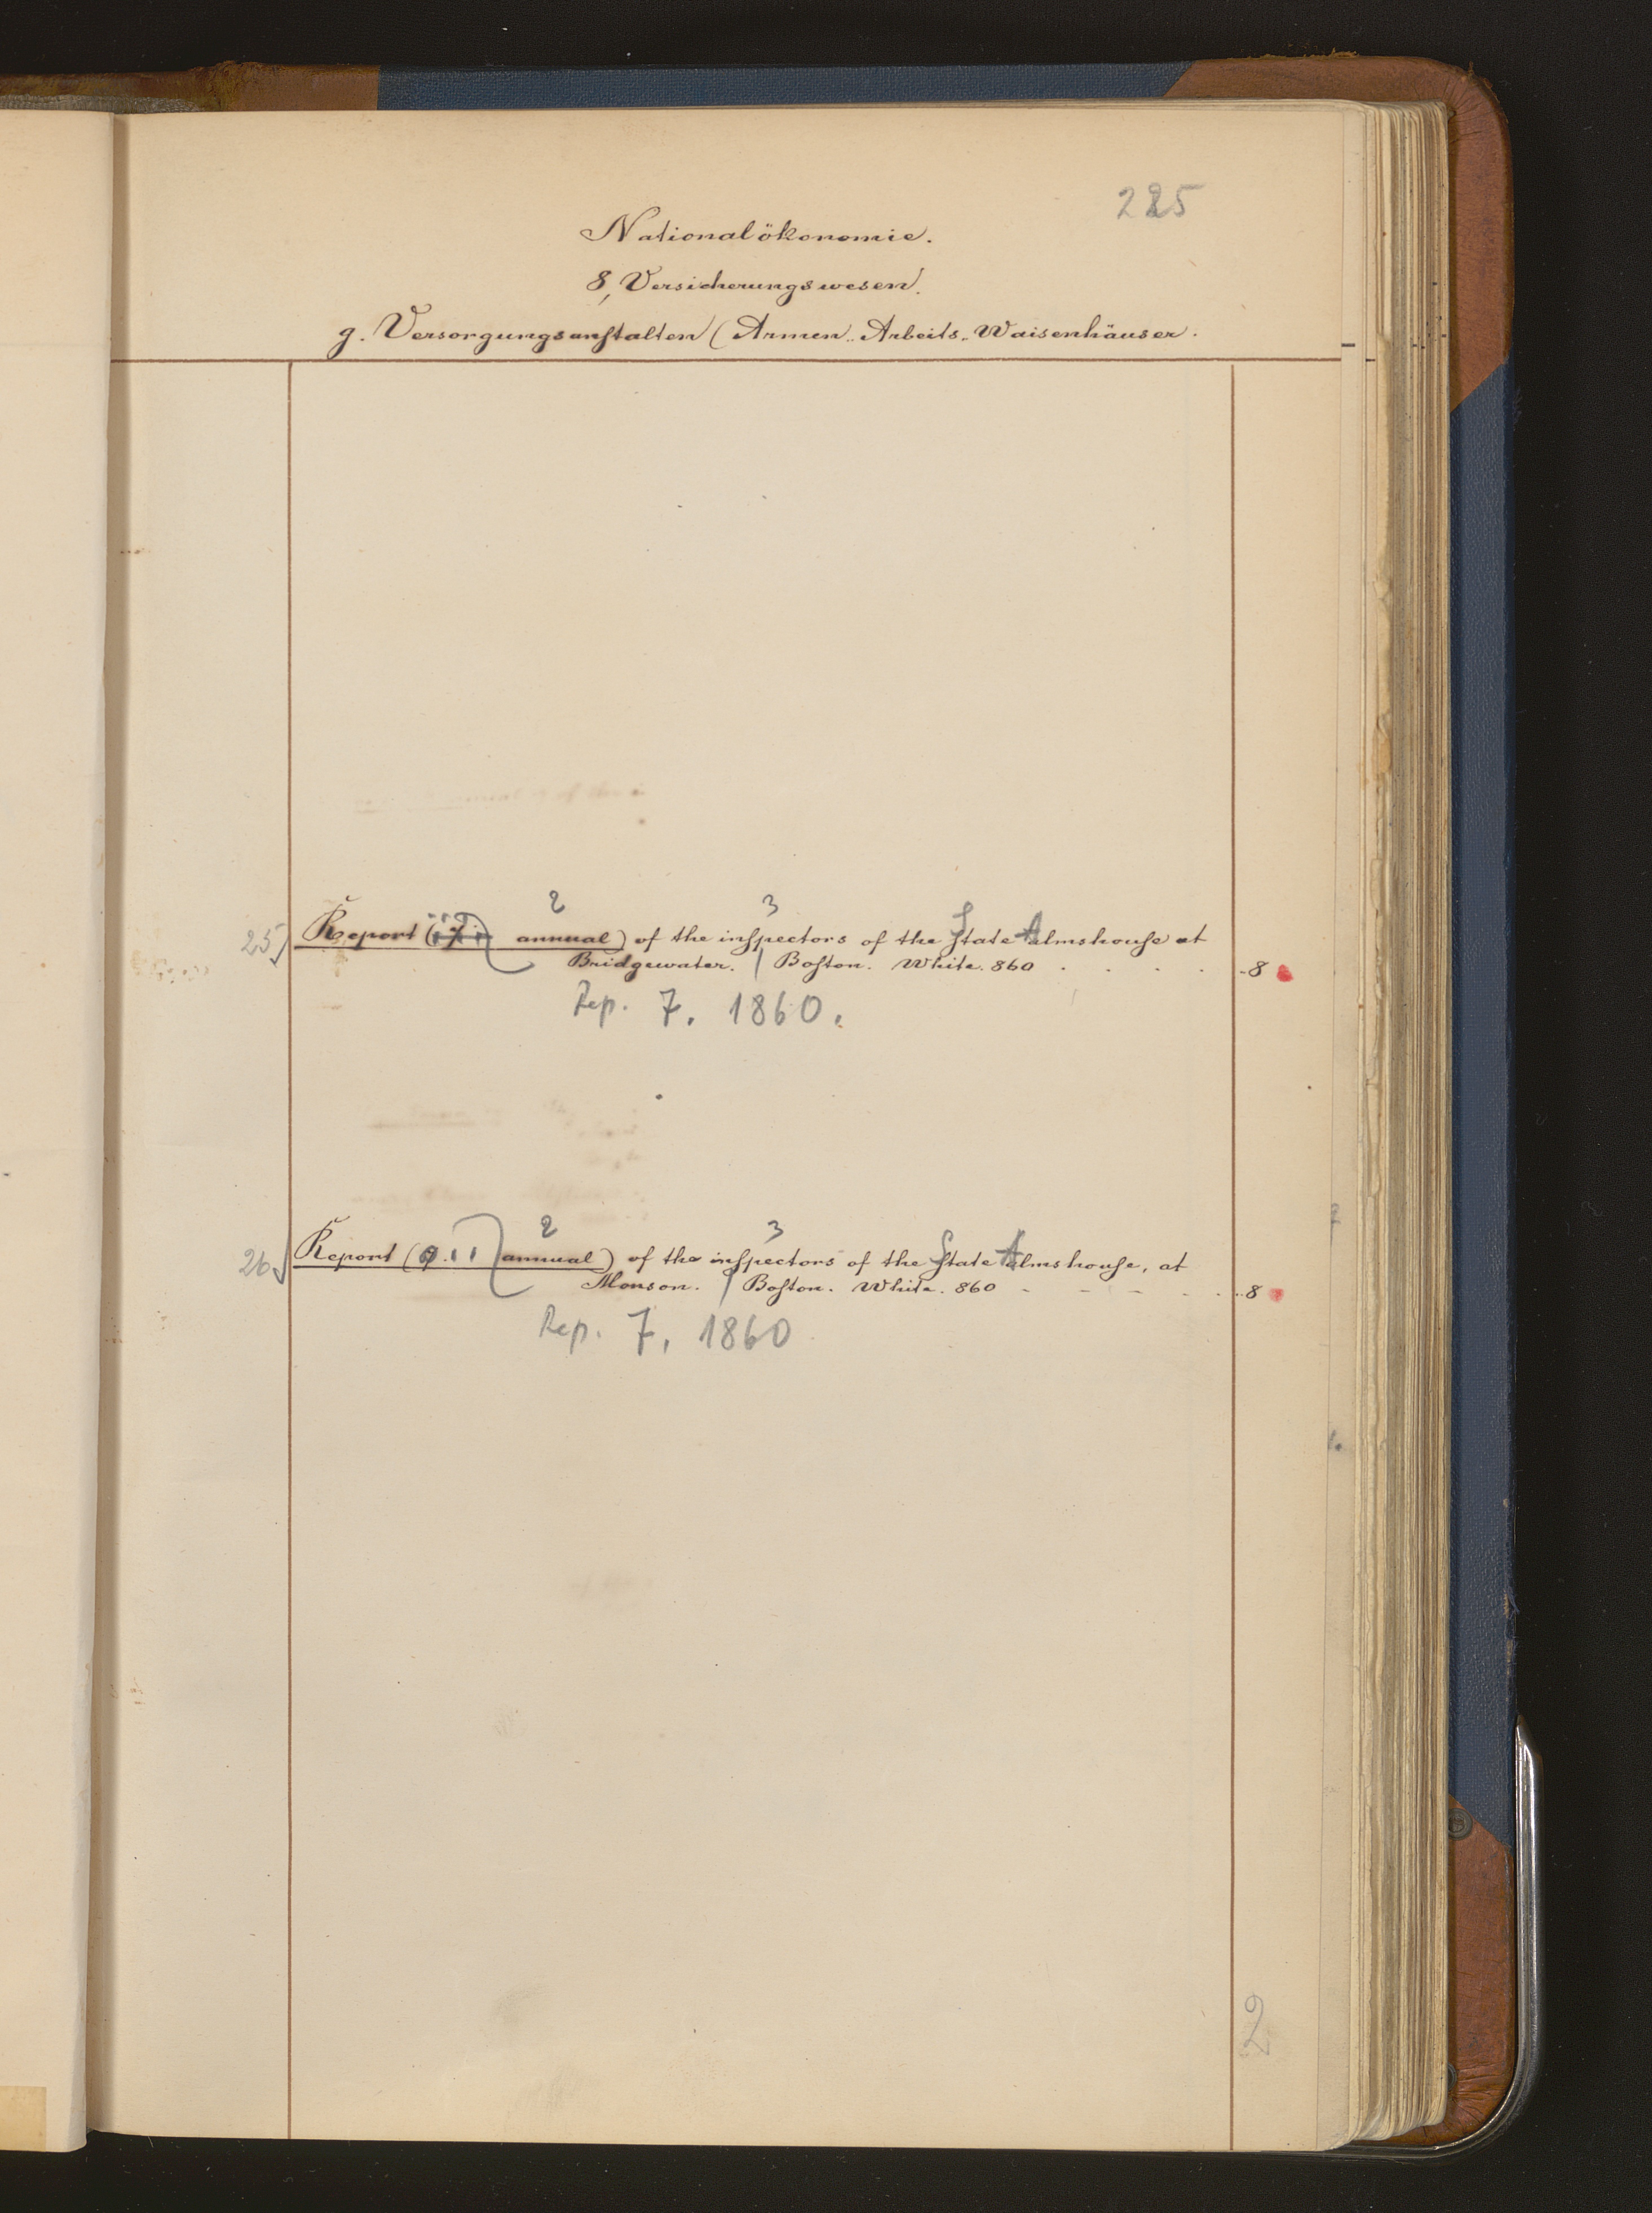 225
Nationalökonomie.
8, Versicherungswesen.
g. Versorgungsanstalten (Armen- Arbeits- Waisenhäuser.
2 3
25) Report (7. annual) of the inspectors of the State Almshouse at
Bridgewater. / Boston. White. 860 . . . . . 8
Rep. 7. 1860.
2 3
26) Report (7. annual) of the inspectors of the State Almshouse, at
Monson. / Boston. White. 860 - - - - . . 8
Rep. 7, 1860
2